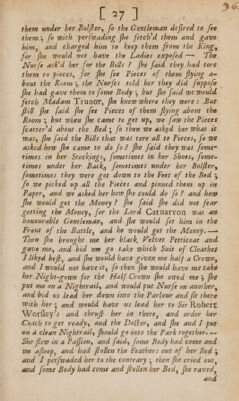 [ 27 ]
36
them under her Bolster, so the Gentleman desired to see
them; so with perswading she fetch'd them and gave
him, and charged him to keep them from the King,
for she would not have the Ladies exposed — The
Nurse ask'd her for the Bills? She said they had tore
them to pieces, for she see Pieces of them flying a-
bout the Room; the Nurses told her they did suppose
she had gave them to some Body; but she said we would
fetch Madam Trunow, she knew where they were: But
still she said she see Pieces of them flying about the
Room; but when she came to get up, we saw the Pieces
scatter'd about the Bed; so then we asked her what it
was, she said the Bills that was tore all to Pieces, so we
asked how she came to do so? she said they was some-
times in her Stockings, sometimes in her Shoes, some-
times under her Back, sometimes under her Bolster,
sometimes they were got down to the Feet of the Bed;
so we picked up all the Pieces and pinned them up in
Paper, and we asked her how she could do so? and how
she would get the Money? she said she did not fear
getting the Money, for the Lord Carnarvon was an
honourable Gentleman, and she would set him in the
Front of the Battle, and he would get the Money. —
Then she brought me her black Velvet Petticoat and
gave me, and bid me go take which Suit of Cloathes
I liked best, and she would have given me half a Crown,
and I would not have it, so then she would have me take
her Night-gown for the Half Crown she owed me; she
put me on a Nightrail, and would put Nurse on another,
and bid us lead her down into the Parlour and sit there
with her; and would have us lead her to Sir Robert
Worsley's and thrust her in there, and order her
Coach to get ready, and the Doctor, and she and I put
on a clean Nightrail, should go into the Park together. —
She flew in a Passion, and said, some Body had come and
we asleep, and had stollen the Feathers out of her Bed;
and I perswaded her to the contrary; then she cried out,
and some Body had come and stollen her Bed, she raved,
and